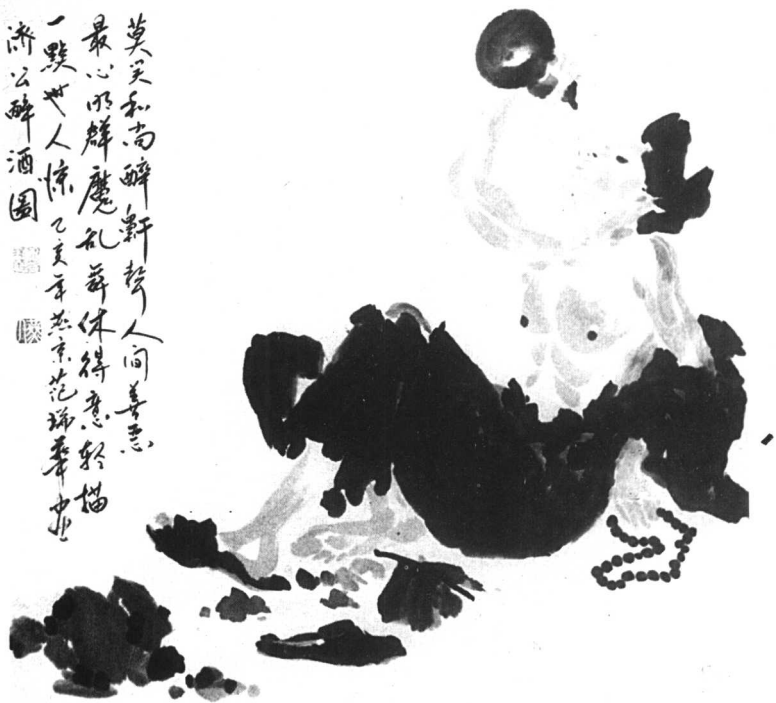 莫笑和尚醉鼾声人间善恶
最心明群魔乱舞休得意轻描
一點世人惊乙亥年燕京范瑞華
濟公醉酒圖